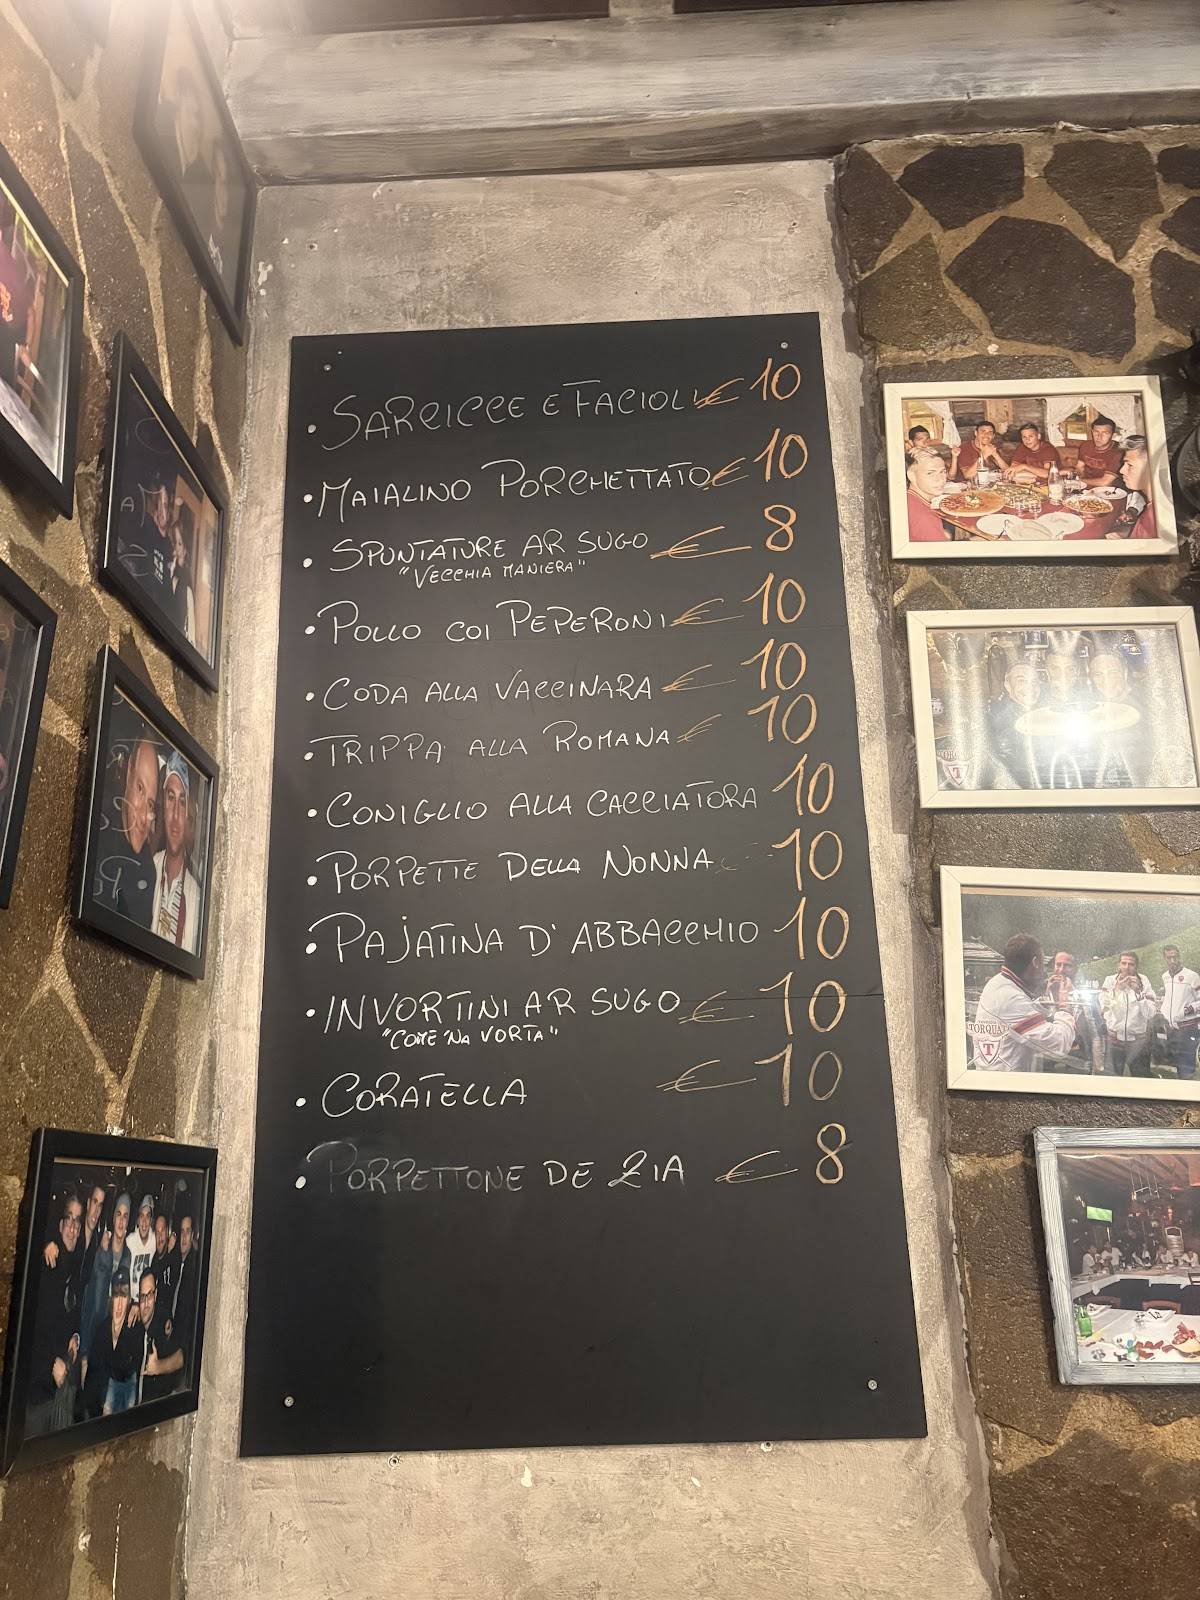 • SARCICCE E FACIOLI € 10
• MAIALINO PORCHETTATO € 10
• SPUNTATURE AR SUGO € 8
"VECCHIA MANIERA"
• POLLO COI PEPERONI € 10
• CODA ALLA VACCINARA € 10
• TRIPPA ALLA ROMANA € 10
• CONIGLIO ALLA CACCIATORA 10
• PORPETTE DELLA NONNA 10
• PAJATINA D'ABBACCHIO 10
• INVORTINI AR SUGO € 10
"COME 'NA VORTA"
• CORATELLA € 10
• PORPETTONE DE ZIA € 8
TORQUAT
T